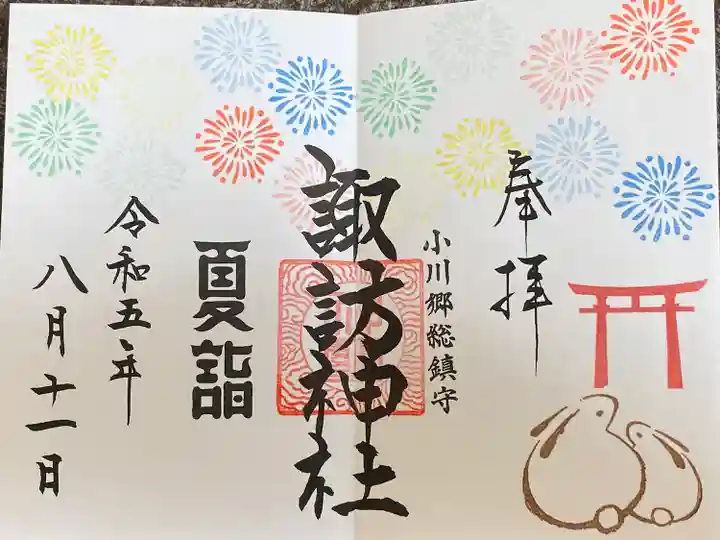 奉拝
小川郷総鎮守
諏訪神社
夏詣
令和五年
八月十一日